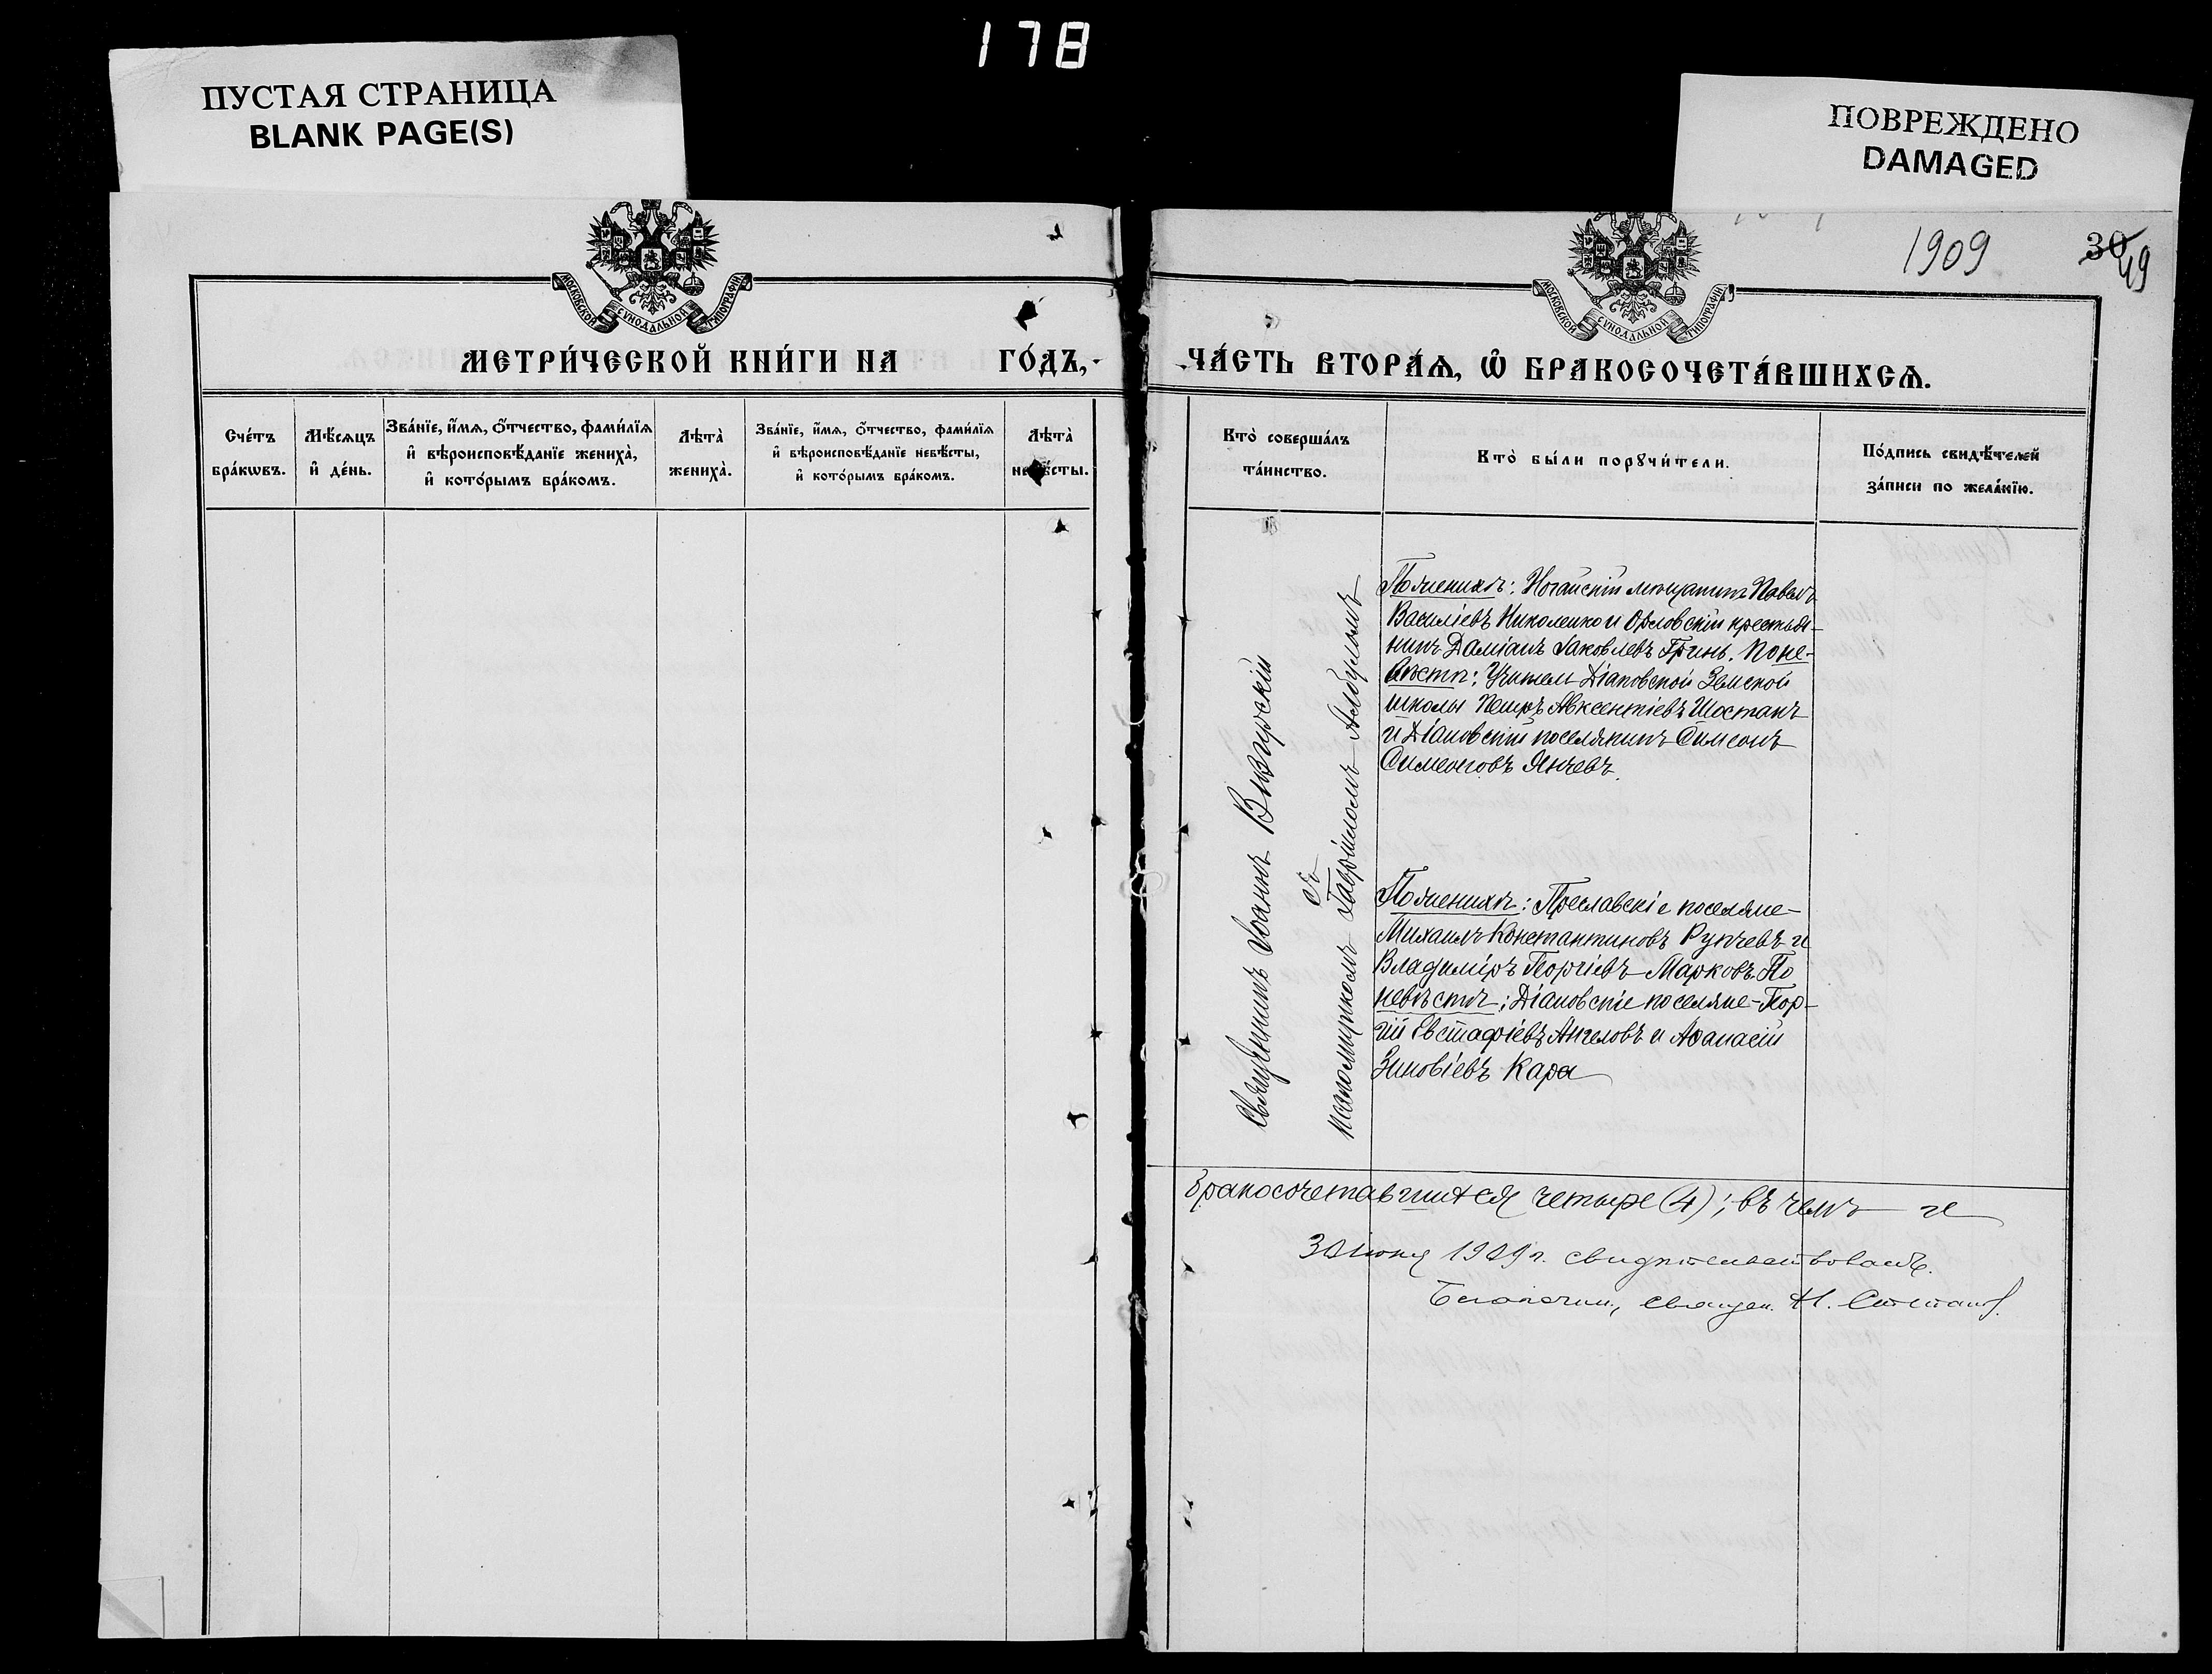 178
ПУСТАЯ СТРАНИЦА
BLANK PAGE(S)
ПОВРЕЖДЕНО
DAMAGED
МОСКОВСКОЙ СѴНОДАЛЬНОЙ ТИПОГРАФІИ
МЕТРИ́ЧЕСКОЙ КНИ́ГИ НА ГО́ДЪ,
Сче́тъ бра́кѡвъ.
Мѣ́сяцъ и҆ де́нь.
Зва́нїе, и҆́мя, ѻ҆́тчество, фами́лїя
и҆ вѣроисповѣ́данїе жениха̀,
и҆ кото́рымъ бра́комъ.
Лѣта̀
жениха̀.
Зва́нїе, и҆́мя, ѻ҆́тчество, фами́лїя
и҆ вѣроисповѣ́данїе невѣ́сты,
и҆ кото́рымъ бра́комъ.
Лѣта̀
невѣ́сты.
1909
30
49
МОСКОВСКОЙ СѴНОДАЛЬНОЙ ТИПОГРАФІИ
ЧА́СТЬ ВТОРА́Ѧ, Ѽ БРАКОСОЧЕТА́ВШИХСѦ.
Кто̀ соверша́лъ
та́инство.
Кто̀ бы́ли порꙋчи́тели.
По́дпись свидѣ́телей
за́писи по жела́нїю.
Священникъ Іоаннъ
съ
псаломщикомъ Гавріиломъ
По женихѣ: Ногайскій мѣщанинъ Павелъ
Василіевъ Николенко и Орловскій крестья-
нинъ Даміанъ Іаковлевъ Гринь. По не-
вѣстѣ: Учитель Діановской Земской
школы Петръ Авксентіевъ Шостакъ
и Діановскій поселянинъ Симеонъ
Симеоновъ Янчевъ.
По женихѣ: Преславскіе поселяне-
Михаилъ Константиновъ Рупчевъ и
Владиміръ Георгіевъ Марковъ. По
невѣстѣ: Діановскіе поселяне-Геор-
гій Евстафіевъ Ангеловъ и Аѳанасій
Зиновіевъ Кара
бракосочетавшихся четыре (4); въ чемъ и
30 іюня 1909 г. свидѣтельствовалъ.
Благочин., священ. Н.